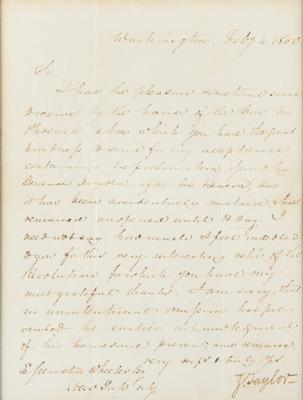 Washington. Feby 4, 1850
Sir.
I had the pleasure sometime since
to receive by the hands of the Hon. Mr.
Phoenix, a box which you had the great
kindness to send for my acceptance
containing the proclamation issued by
General Arnold after his treason, but
it has been accidentally mislaid & has
remained unopened until to day. I
need not say how much I feel indebted
to you for this very interesting relic of the
Revolution for which you have my
most grateful thanks. I am sorry that
an unintentional omission has pre-
vented the earlier acknowledgment
of this handsome present, and remain
very resp. & truly yrs.
New York City
Z. Taylor